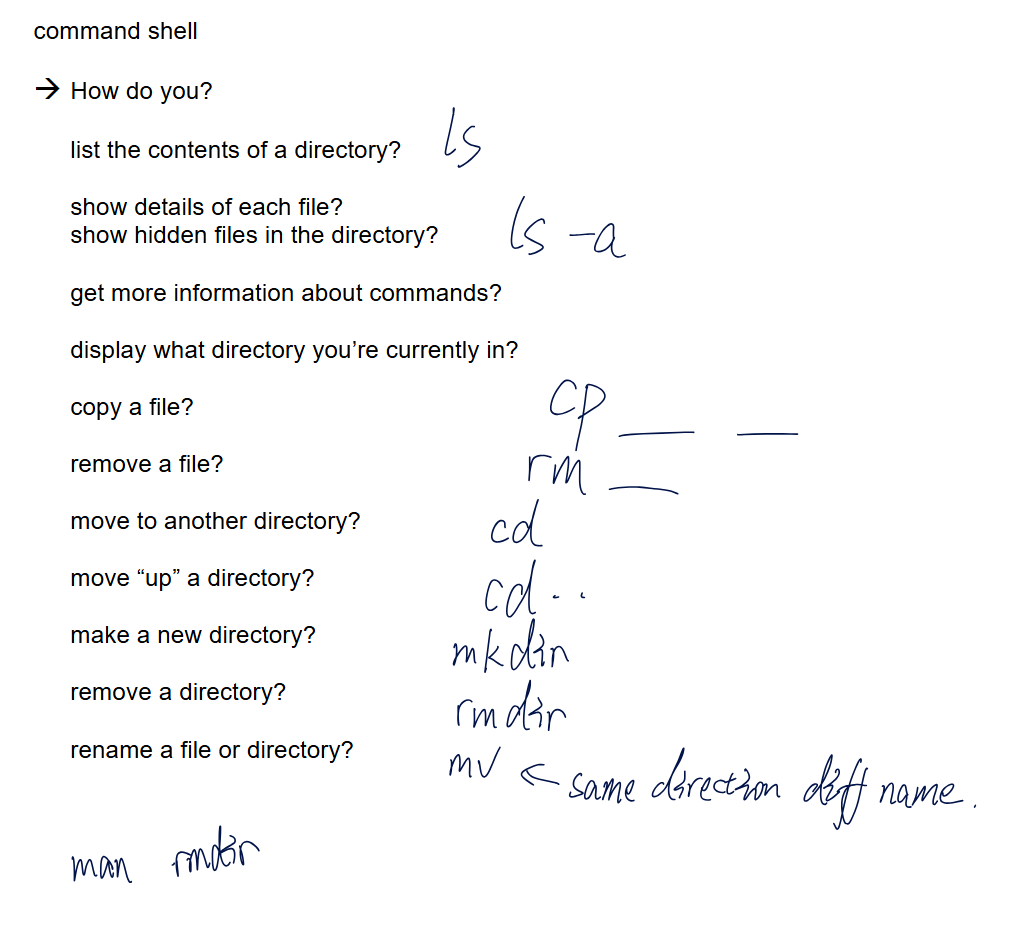 command shell
→ How do you?
list the contents of a directory? ls
show details of each file?
show hidden files in the directory? ls -a
get more information about commands?
display what directory you’re currently in?
copy a file? cp ___ ___
remove a file? rm ___
move to another directory? cd
move “up” a directory? cd ..
make a new directory? mkdir
remove a directory? rmdir
rename a file or directory? mv ← same direction diff name.
man rmdir